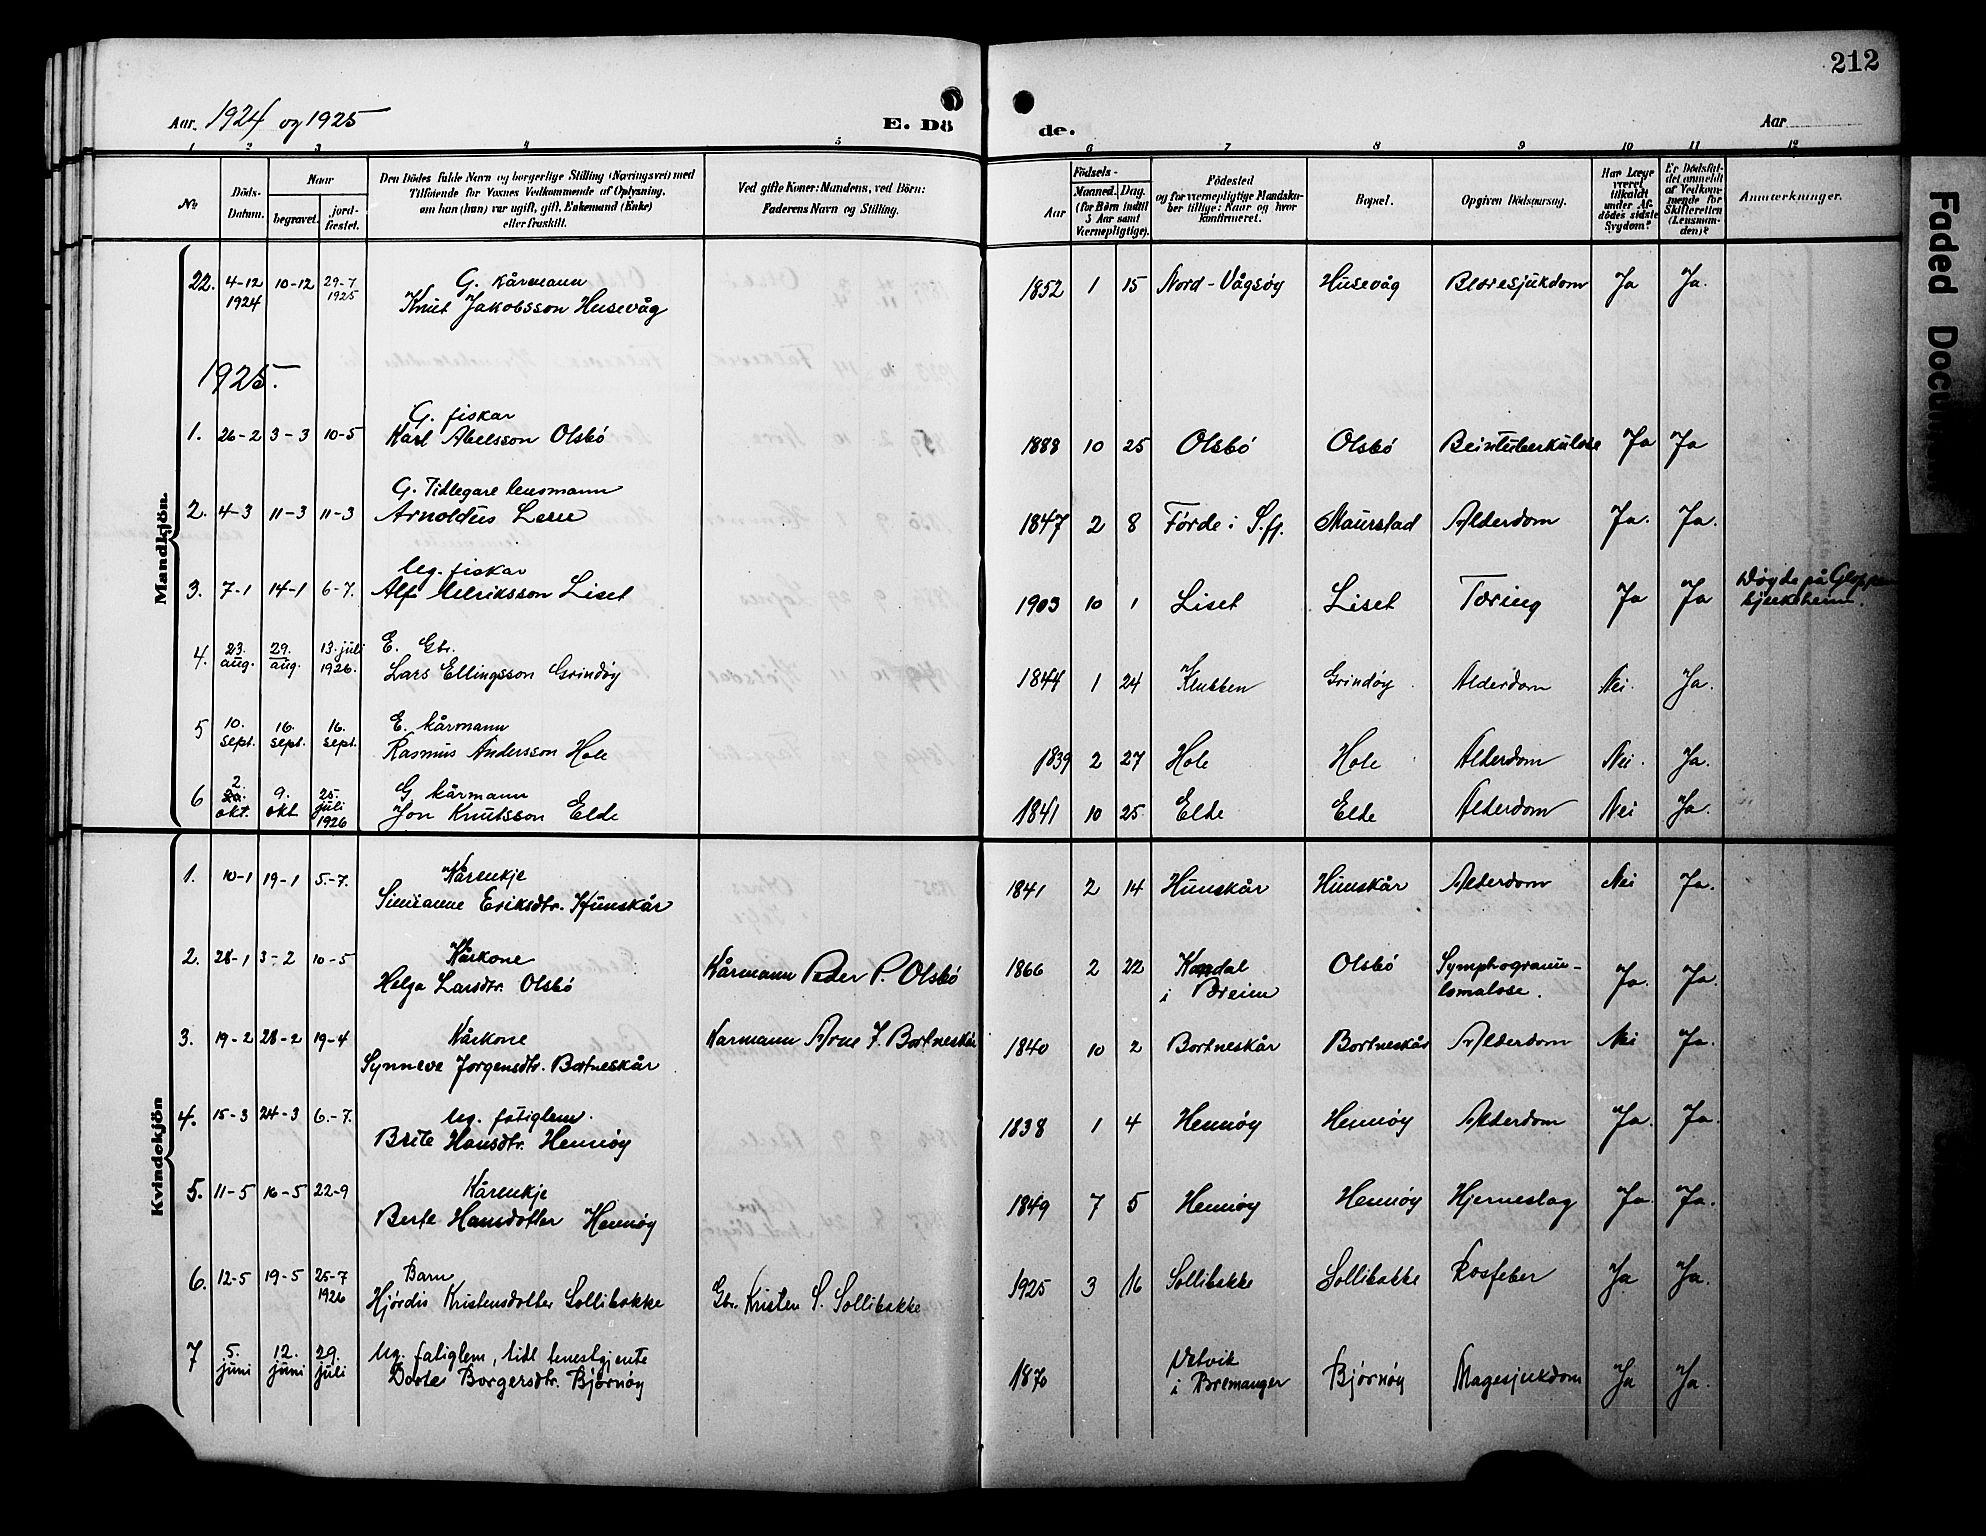 212
Aar. 1924 og 1925
E. Dö
de.
Aar
1 2 3 4 5 6 7 8 9 10 11 12
No
Döds-Datum.
Naar
begravet.
jord-fæstet.
Den Dödes fulde Navn og borgerlige Stilling (Næringsvei) med
Tilföiende for Voxnes Vedkommende af Oplysning,
om han (hun) var ugift, gift, Enkemand (Enke)
eller fraskilt.
Ved gifte Koner: Mandens, ved Börn:
Faderens Navn og Stilling.
Födsels-
Aar
Maaned. Dag.
(for Börn indtil
5 Aar samt
Værnepligtige).
Födested
og for værnepligtige Mandska-
ber tillige: Naar og hvor
konfirmeret.
Bopæl.
Opgiven Dödsaarsag.
Har Læge
været
tilkaldt
under Af-
dödes sidste
Sygdom?
Er Dödsfal-
det anmeldt
af Vedkom-
mende for
Skifteretten
(Lensman-
den)?
Anmærkninger.
Mandkjön.
22. 4-12 1924 10-12 29-7 1925 G. kårmann
Knut Jakobsson Husevåg 1852 1 15 Nord-Vågsøy Husevåg Blæresjukdom Ja Ja.
1925.
1. 26-2 3-3 10-5 G. fiskar
Karl Abelsson Olsbö 1888 10 25 Olsbö Olsbö Beintuberkulose Ja Ja
2. 4-3 11-3 11-3 G. Tidlegare lensmann
Arnoldus 1847 2 8 Førde i S.fj. Maurstad Alderdom Ja. Ja.
3. 7-1 14-1 6-7. Ug. fiskar
Alf Liset 1903 10 1 Liset Liset Tæring Ja Ja Døyde på
sjukeheim.
4. 23. aug. 29. aug. 13. juli 1926. E. Gbr.
Lars Ellingsson Grindøy 1844 1 24 Klubben Grindøy Alderdom Nei. Ja.
5 10. sept. 16. sept. 16. sept. E. kårmann
Rasmus Andersson Hole 1839 2 27 Hole Hole Alderdom Nei. Ja.
6 2. okt. 9. okt 25. juli 1926 G kårmann
Jon Knutsson Elde 1841 10 25 Elde Elde Alderdom Nei Ja.
Kvindekjön
1. 10-1 19-1 5.-7. Kårenkje
Eriksdtr. Hunskår 1841 2 14 Hunskår Hunskår Alderdom Nei Ja.
2. 28-1 3-2 10-5 Kårkone
Helga Larsdtr. Olsbö Kårmann Peder P. Olsbö 1866 2 22 Kandal
i Breim Olsbö Ja. Ja.
3. 19-2 28-2 19-4 Kårkone
Synneve Jorgensdtr. Bortneskår Karmann Arne J. Bortneskår 1840 10 2 Bortneskår Bortneskår Alderdom Nei Ja.
4. 15-3 24-3 6.-7. Ug. fatiglem.
Brite Hansdtr. Hennøy 1838 1 4 Hennøy Hennøy Alderdom Ja. Ja.
5. 11-5 16-5 22-9 Kårenkje
Berte Hansdotter Hennøy 1849 7 5 Hennøy Hennøy Hjerneslag Ja. Ja.
6. 12-5 19-5 25-7 1926 Barn
Hjördis Kristensdotter Sollibakke Gbr. Kristen S. Sollibakke 1925 3 16 Sollibakke Sollibakke Rosfeber Ja Ja.
7 5. juni 12. juni 29. juli Ug. fatiglem, tidl tenestgjente
Dorte Borgersdtr. Bjørnøy 1870 Vetvik
i Bremanger Bjørnøy Magesjukdom Ja Ja.